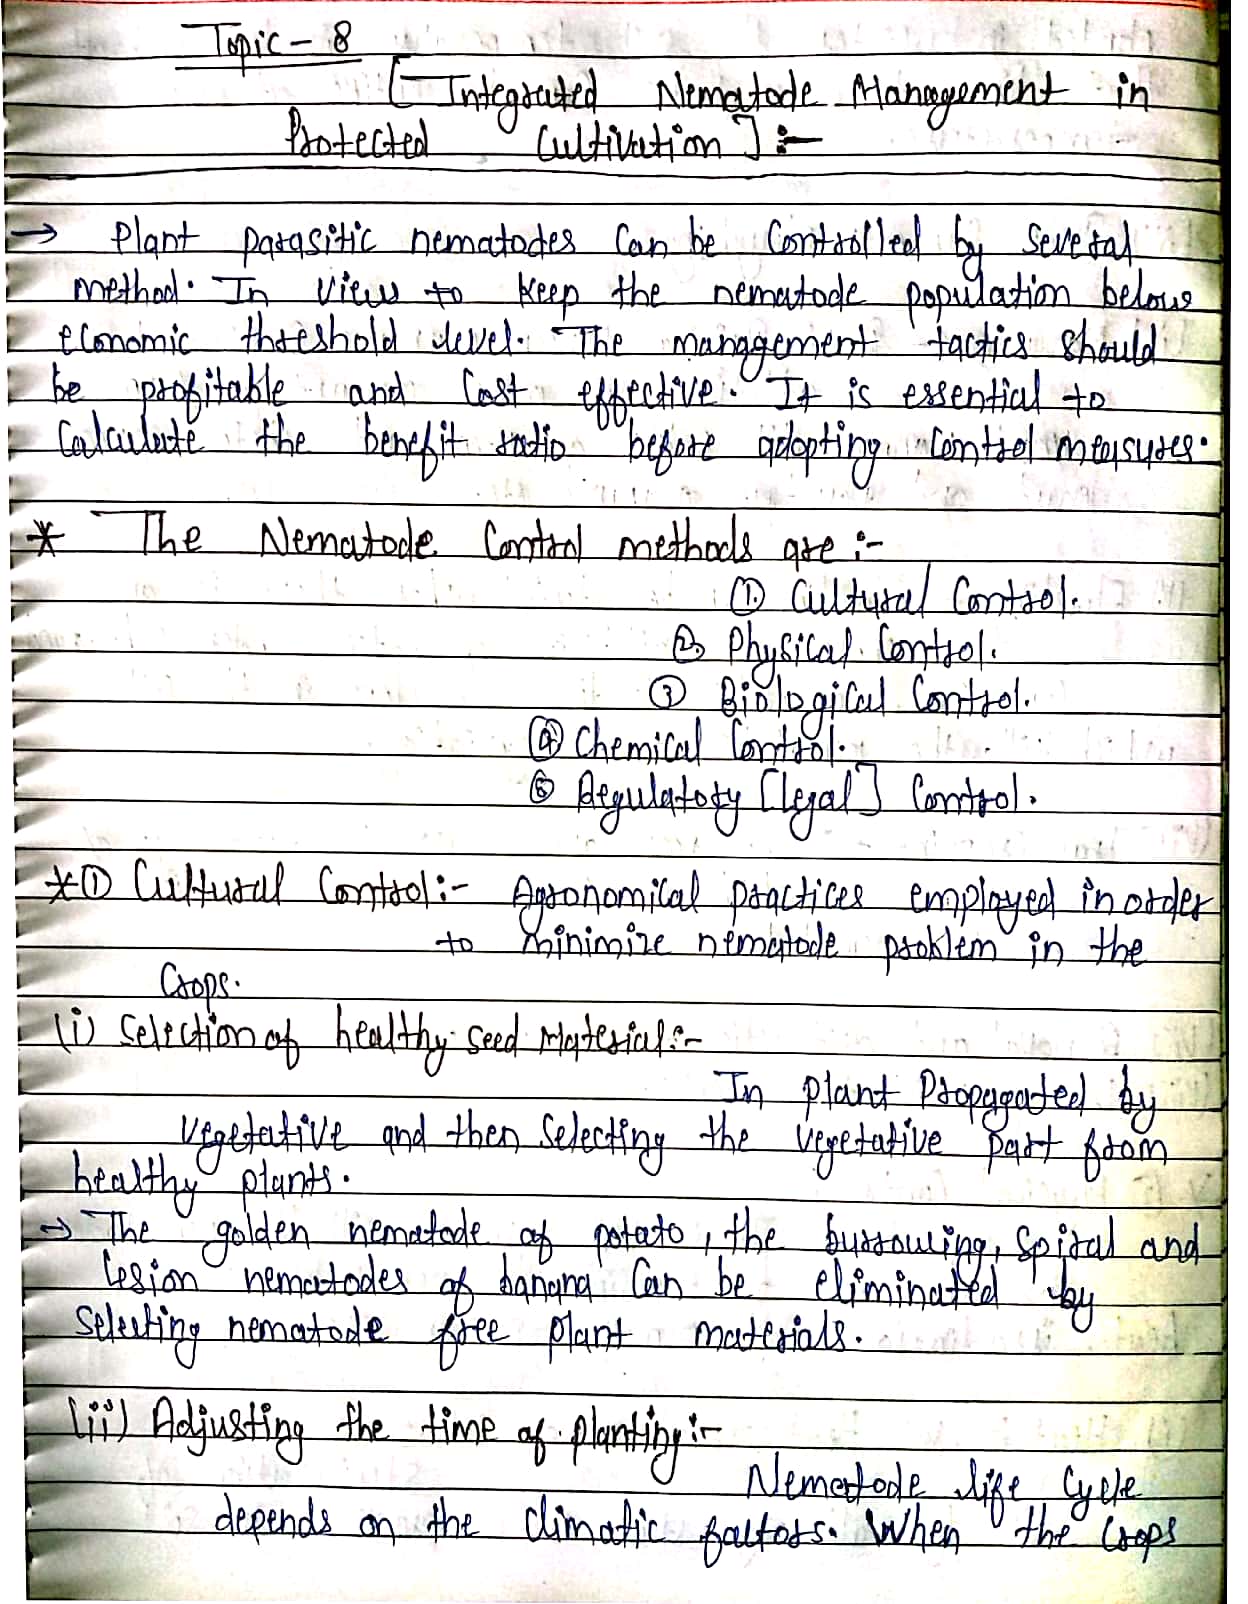 Topic - 8
[Integrated Nematode Management in
Protected Cultivation] :-
→ Plant parasitic nematodes Can be Controlled by several
method. In view to keep the nematode population below
economic threshold level. The management tactics should
be profitable and Cost effective. It is essential to
Calculate the benefit ratio before adopting control measures.
* The Nematode Control methods are :-
① Cultural Control.
② Physical Control.
③ Biological Control.
④ Chemical Control.
⑤ Regulatory [legal] Control.
*① Cultural Control :- Agronomical practices employed in order
to minimize nematode problem in the
Crops.
(i) Selection of healthy seed Material :-
In plant Propagated by
vegetative and then Selecting the vegetative part from
healthy plants.
→ The golden nematode of potato, the burrowing, Spiral and
lesion nematodes of banana Can be eliminated by
Selecting nematode free plant materials.
(ii) Adjusting the time of planting :-
Nematode life Cycle
depends on the climatic factors. When the Crops